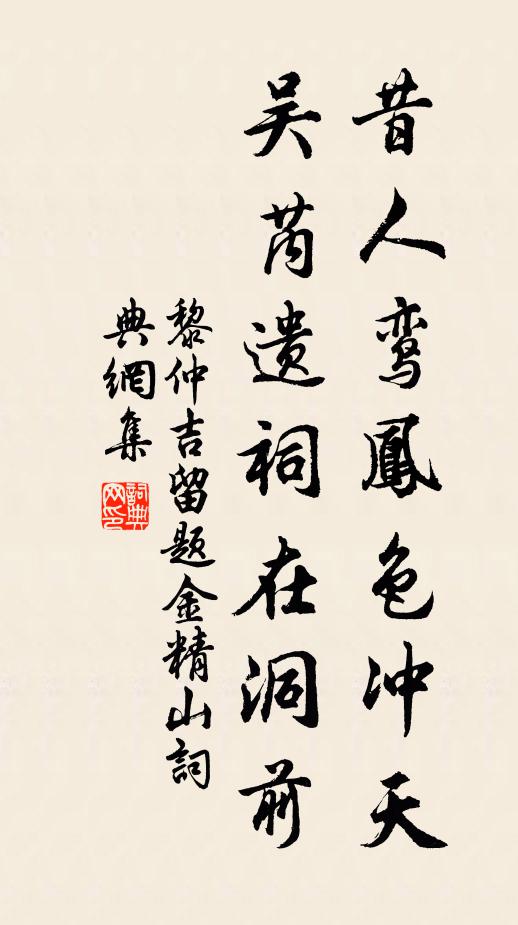 昔人鸾鳳色冲天
吴芮遗祠在洞前
黎仲吉留题金精山詞
典網集
詞典
网印